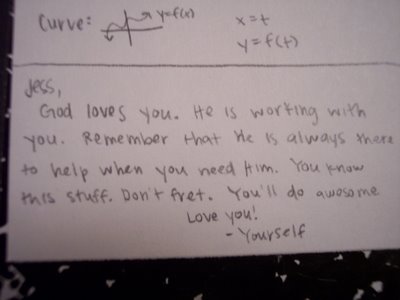 Curve: y=f(x) x=t
y=f(t)
Jess,
God loves you. He is working with
you. Remember that He is always there
to help when you need Him. You know
this stuff. Don't fret. You'll do awesome
Love you!
- Yourself